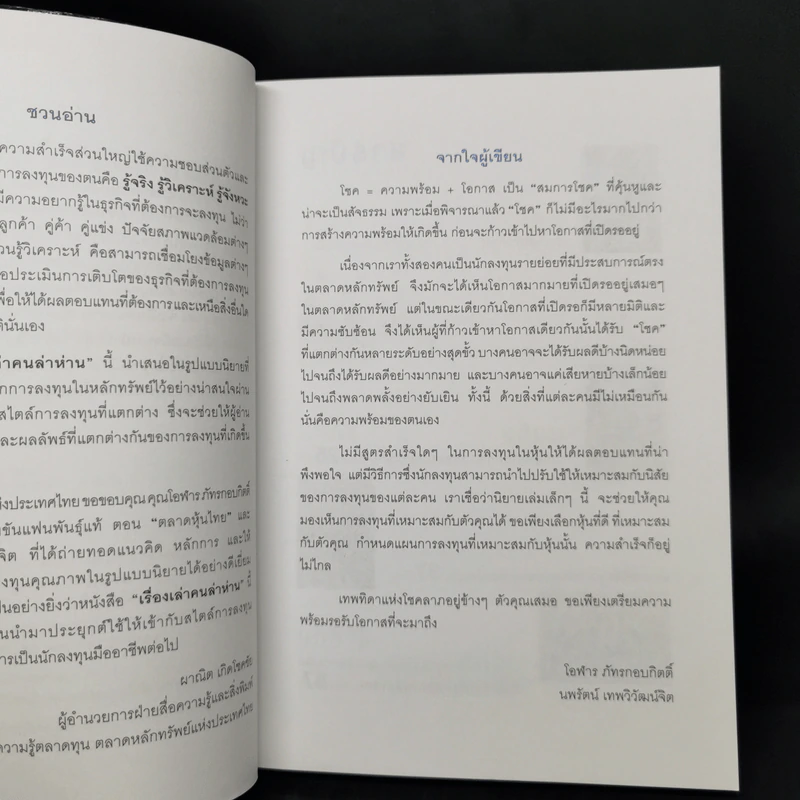 ชวนอ่าน
ความสำเร็จส่วนใหญ่ใช้ความชอบส่วนตัวและ
การลงทุนของตนคือ รู้จริง รู้วิเคราะห์ รู้จังหวะ
มีความอยากรู้ในธุรกิจที่ต้องการจะลงทุน ไม่ว่า
ลูกค้า คู่ค้า คู่แข่ง ปัจจัยสภาพแวดล้อมต่างๆ
วนรู้วิเคราะห์ คือสามารถเชื่อมโยงข้อมูลต่างๆ
อประเมินการเติบโตของธุรกิจที่ต้องการลงทุน
พื่อให้ได้ผลตอบแทนที่ต้องการและเหนือสิ่งอื่นใด
ตินั่นเอง
ล่าคนล่าห่าน” นี้ นำเสนอในรูปแบบนิยายที่
ักการลงทุนในหลักทรัพย์ไว้อย่างน่าสนใจผ่าน
สไตล์การลงทุนที่แตกต่าง ซึ่งจะช่วยให้ผู้อ่าน
ละผลลัพธ์ที่แตกต่างกันของการลงทุนที่เกิดขึ้น
่งประเทศไทย ขอขอบคุณ คุณโอฬาร ภัทรกอบกิตติ์
ชันแฟนพันธุ์แท้ ตอน “ตลาดหุ้นไทย” และ
จิต ที่ได้ถ่ายทอดแนวคิด หลักการ และให้
งทุนคุณภาพในรูปแบบนิยายได้อย่างดีเยี่ยม
ป็นอย่างยิ่งว่าหนังสือ “เรื่องเล่าคนล่าห่าน” นี้
นนำมาประยุกต์ใช้ให้เข้ากับสไตล์การลงทุน
การเป็นนักลงทุนมืออาชีพต่อไป
ผาณิต เกิดโชคชัย
ผู้อำนวยการฝ่ายสื่อความรู้และสิ่งพิมพ์
ความรู้ตลาดทุน ตลาดหลักทรัพย์แห่งประเทศไทย
จากใจผู้เขียน
โชค = ความพร้อม + โอกาส เป็น “สมการโชค” ที่คุ้นหูและ
น่าจะเป็นสัจธรรม เพราะเมื่อพิจารณาแล้ว “โชค” ก็ไม่มีอะไรมากไปกว่า
การสร้างความพร้อมให้เกิดขึ้น ก่อนจะก้าวเข้าไปหาโอกาสที่เปิดรออยู่
เนื่องจากเราทั้งสองคนเป็นนักลงทุนรายย่อยที่มีประสบการณ์ตรง
ในตลาดหลักทรัพย์ จึงมักจะได้เห็นโอกาสมากมายที่เปิดรออยู่เสมอๆ
ในตลาดหลักทรัพย์ แต่ในขณะเดียวกันโอกาสที่เปิดรอก็มีหลายมิติและ
มีความซับซ้อน จึงได้เห็นผู้ที่ก้าวเข้าหาโอกาสเดียวกันนั้นได้รับ “โชค”
ที่แตกต่างกันหลายระดับอย่างสุดขั้ว บางคนอาจจะได้รับผลดีบ้างนิดหน่อย
ไปจนถึงได้รับผลดีอย่างมากมาย และบางคนอาจแค่เสียหายบ้างเล็กน้อย
ไปจนถึงพลาดพลั้งอย่างยับเยิน ทั้งนี้ ด้วยสิ่งที่แต่ละคนมีไม่เหมือนกัน
นั่นคือความพร้อมของตนเอง
ไม่มีสูตรสำเร็จใดๆ ในการลงทุนในหุ้นให้ได้ผลตอบแทนที่น่า
พึงพอใจ แต่มีวิธีการซึ่งนักลงทุนสามารถนำไปปรับใช้ให้เหมาะสมกับนิสัย
ของการลงทุนของแต่ละคน เราเชื่อว่านิยายเล่มเล็กๆ นี้ จะช่วยให้คุณ
มองเห็นการลงทุนที่เหมาะสมกับตัวคุณได้ ขอเพียงเลือกหุ้นที่ดี ที่เหมาะสม
กับตัวคุณ กำหนดแผนการลงทุนที่เหมาะสมกับหุ้นนั้น ความสำเร็จก็อยู่
ไม่ไกล
เทพทิดาแห่งโชคลาภอยู่ข้างๆ ตัวคุณเสมอ ขอเพียงเตรียมความ
พร้อมรอรับโอกาสที่จะมาถึง
โอฬาร ภัทรกอบกิตติ์
นพรัตน์ เทพวิวัฒน์จิต